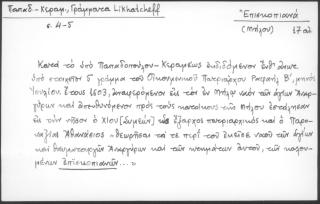 Παπαδ-Κεραμ., Γράμματα Likhatcheff
σ. 4-5
"Επισκοπιανά"
(Μῆλος) 17 αἰ.
Κατά τό ὑπό Παπαδοπούλου-Κεραμέως ἐκδιδόμενον ἐνθ' ἀνωτ.
ὑπό στοιχεῖον 5 γράμμα τοῦ Οἰκουμενικοῦ Πατριάρχου Ραφαήλ Β', μηνός
Ἰουλίου ἔτους 1603, ἀναφερόμενον εἰς τόν ἐν Μήλῳ ναόν τῶν ἁγίων Ἀναρ-
γύρων καί ἀπευθυνόμενον πρός τούς κατοίκους τῆς Μήλου ἐστάλησαν
εἰς τήν νῆσον ὁ Χίου [Συμεών] ὡς ἔξαρχος πατριαρχικός καί ὁ Παρο-
ναξίας Ἀθανάσιος "θεωρῆσαι τά τε περί τοῦ ἐκεῖσε ναοῦ τῶν ἁγίων
καί θαυματουργῶν Ἀναργύρων καί τῶν κτημάτων αὐτοῦ, τῶν καλου-
μένων ἐπισκοπιανῶν..."